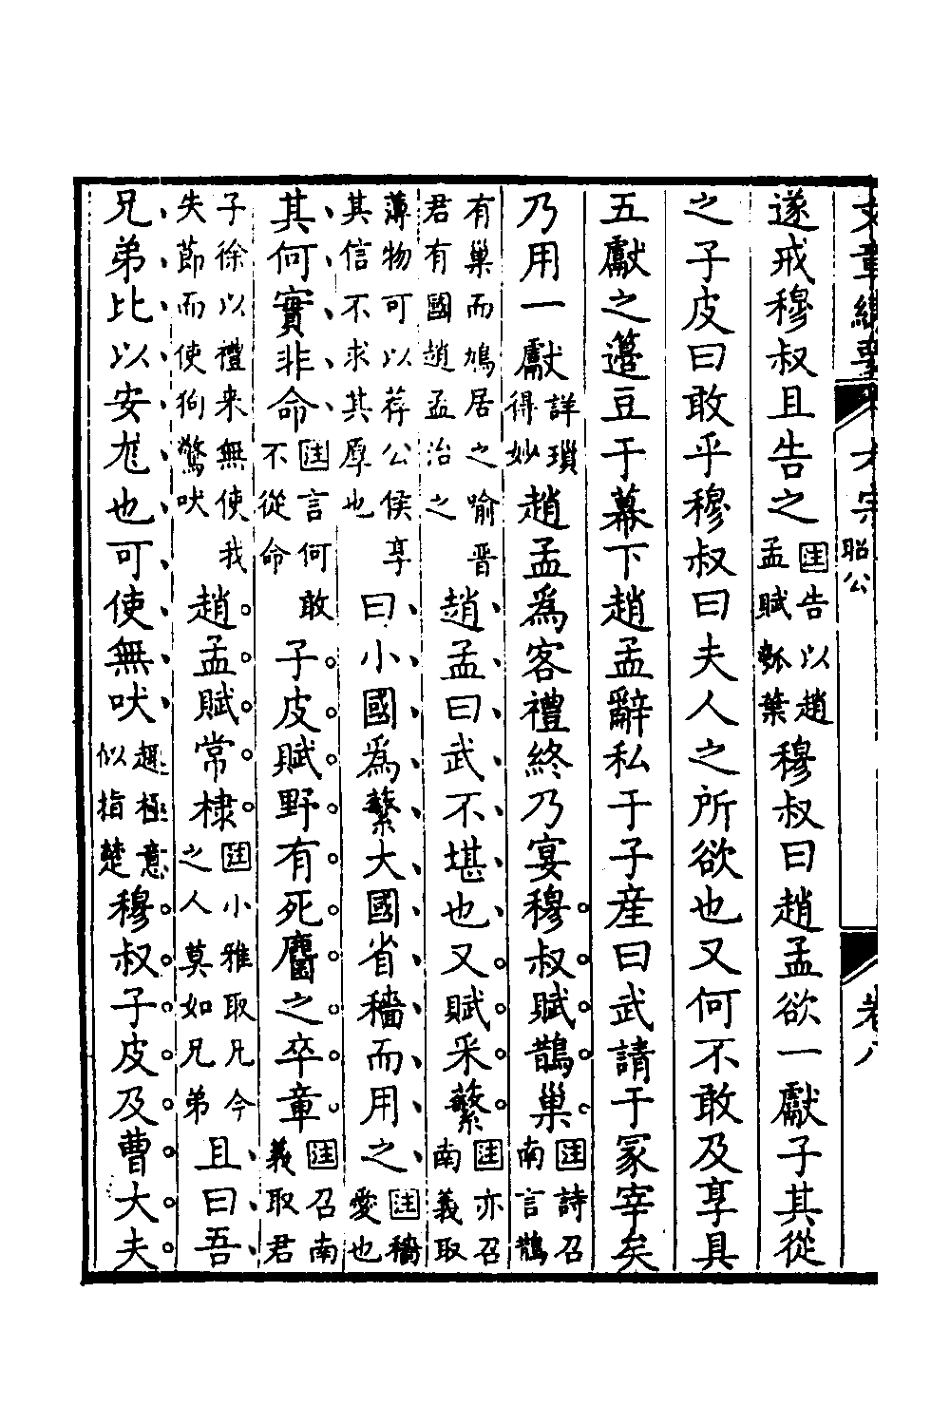 文章練要 六宗 昭公 卷八
遂戒穆叔且告之注告以趙孟賦瓠葉穆叔曰趙孟欲一獻子其從
之子皮曰敢乎穆叔曰夫人之所欲也又何不敢及享具
五獻之籩豆于幕下趙孟辭私于子產曰武請于冡宰矣
乃用一獻詳瑣得妙趙孟為客禮終乃宴穆叔賦鵲巢注詩召南言鵲
有巢而鳩居之喻晉君有國趙孟治之趙孟曰武不堪也又賦采蘩注亦召南義取
薄物可以荐公侯享其信不求其厚也曰小國為蘩大國省穡而用之注穡愛也
其何實非命注言何敢不從命子皮賦野有死麕之卒章注召南義取君
子徐以禮來無使我失節而使狗驚吠趙孟賦常棣注小雅取凡今之人莫如兄弟且曰吾
兄弟比以安尨也可使無吠趣極意似指楚穆叔子皮及曹大夫